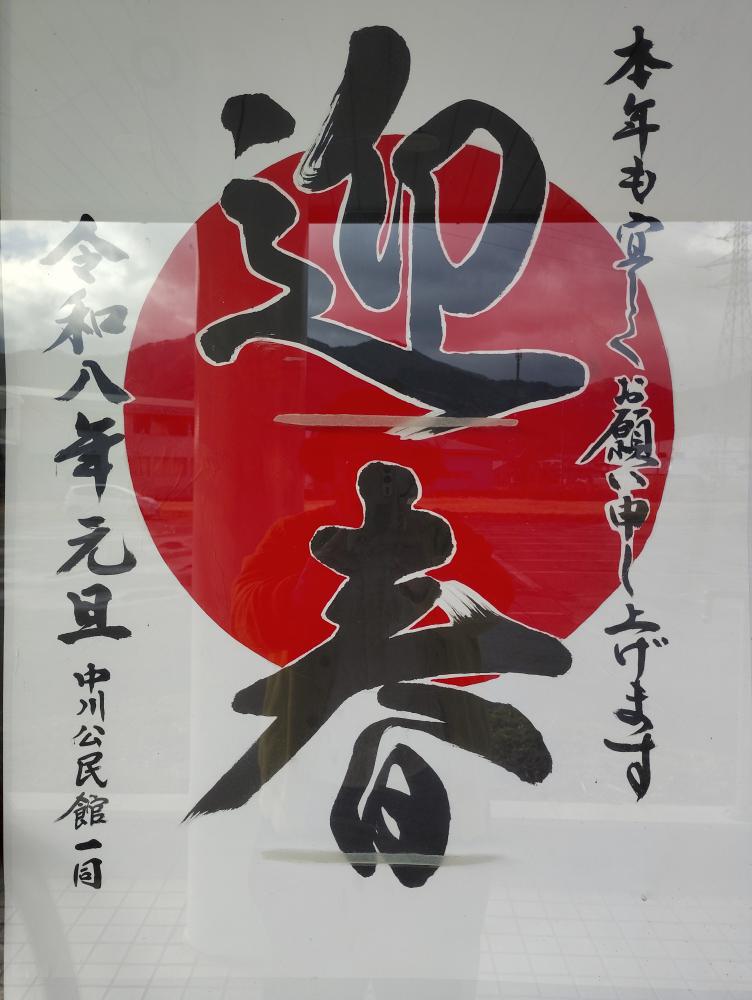 本年も宜しくお願い申し上げます
迎春
令和八年元旦
中川公民館一同